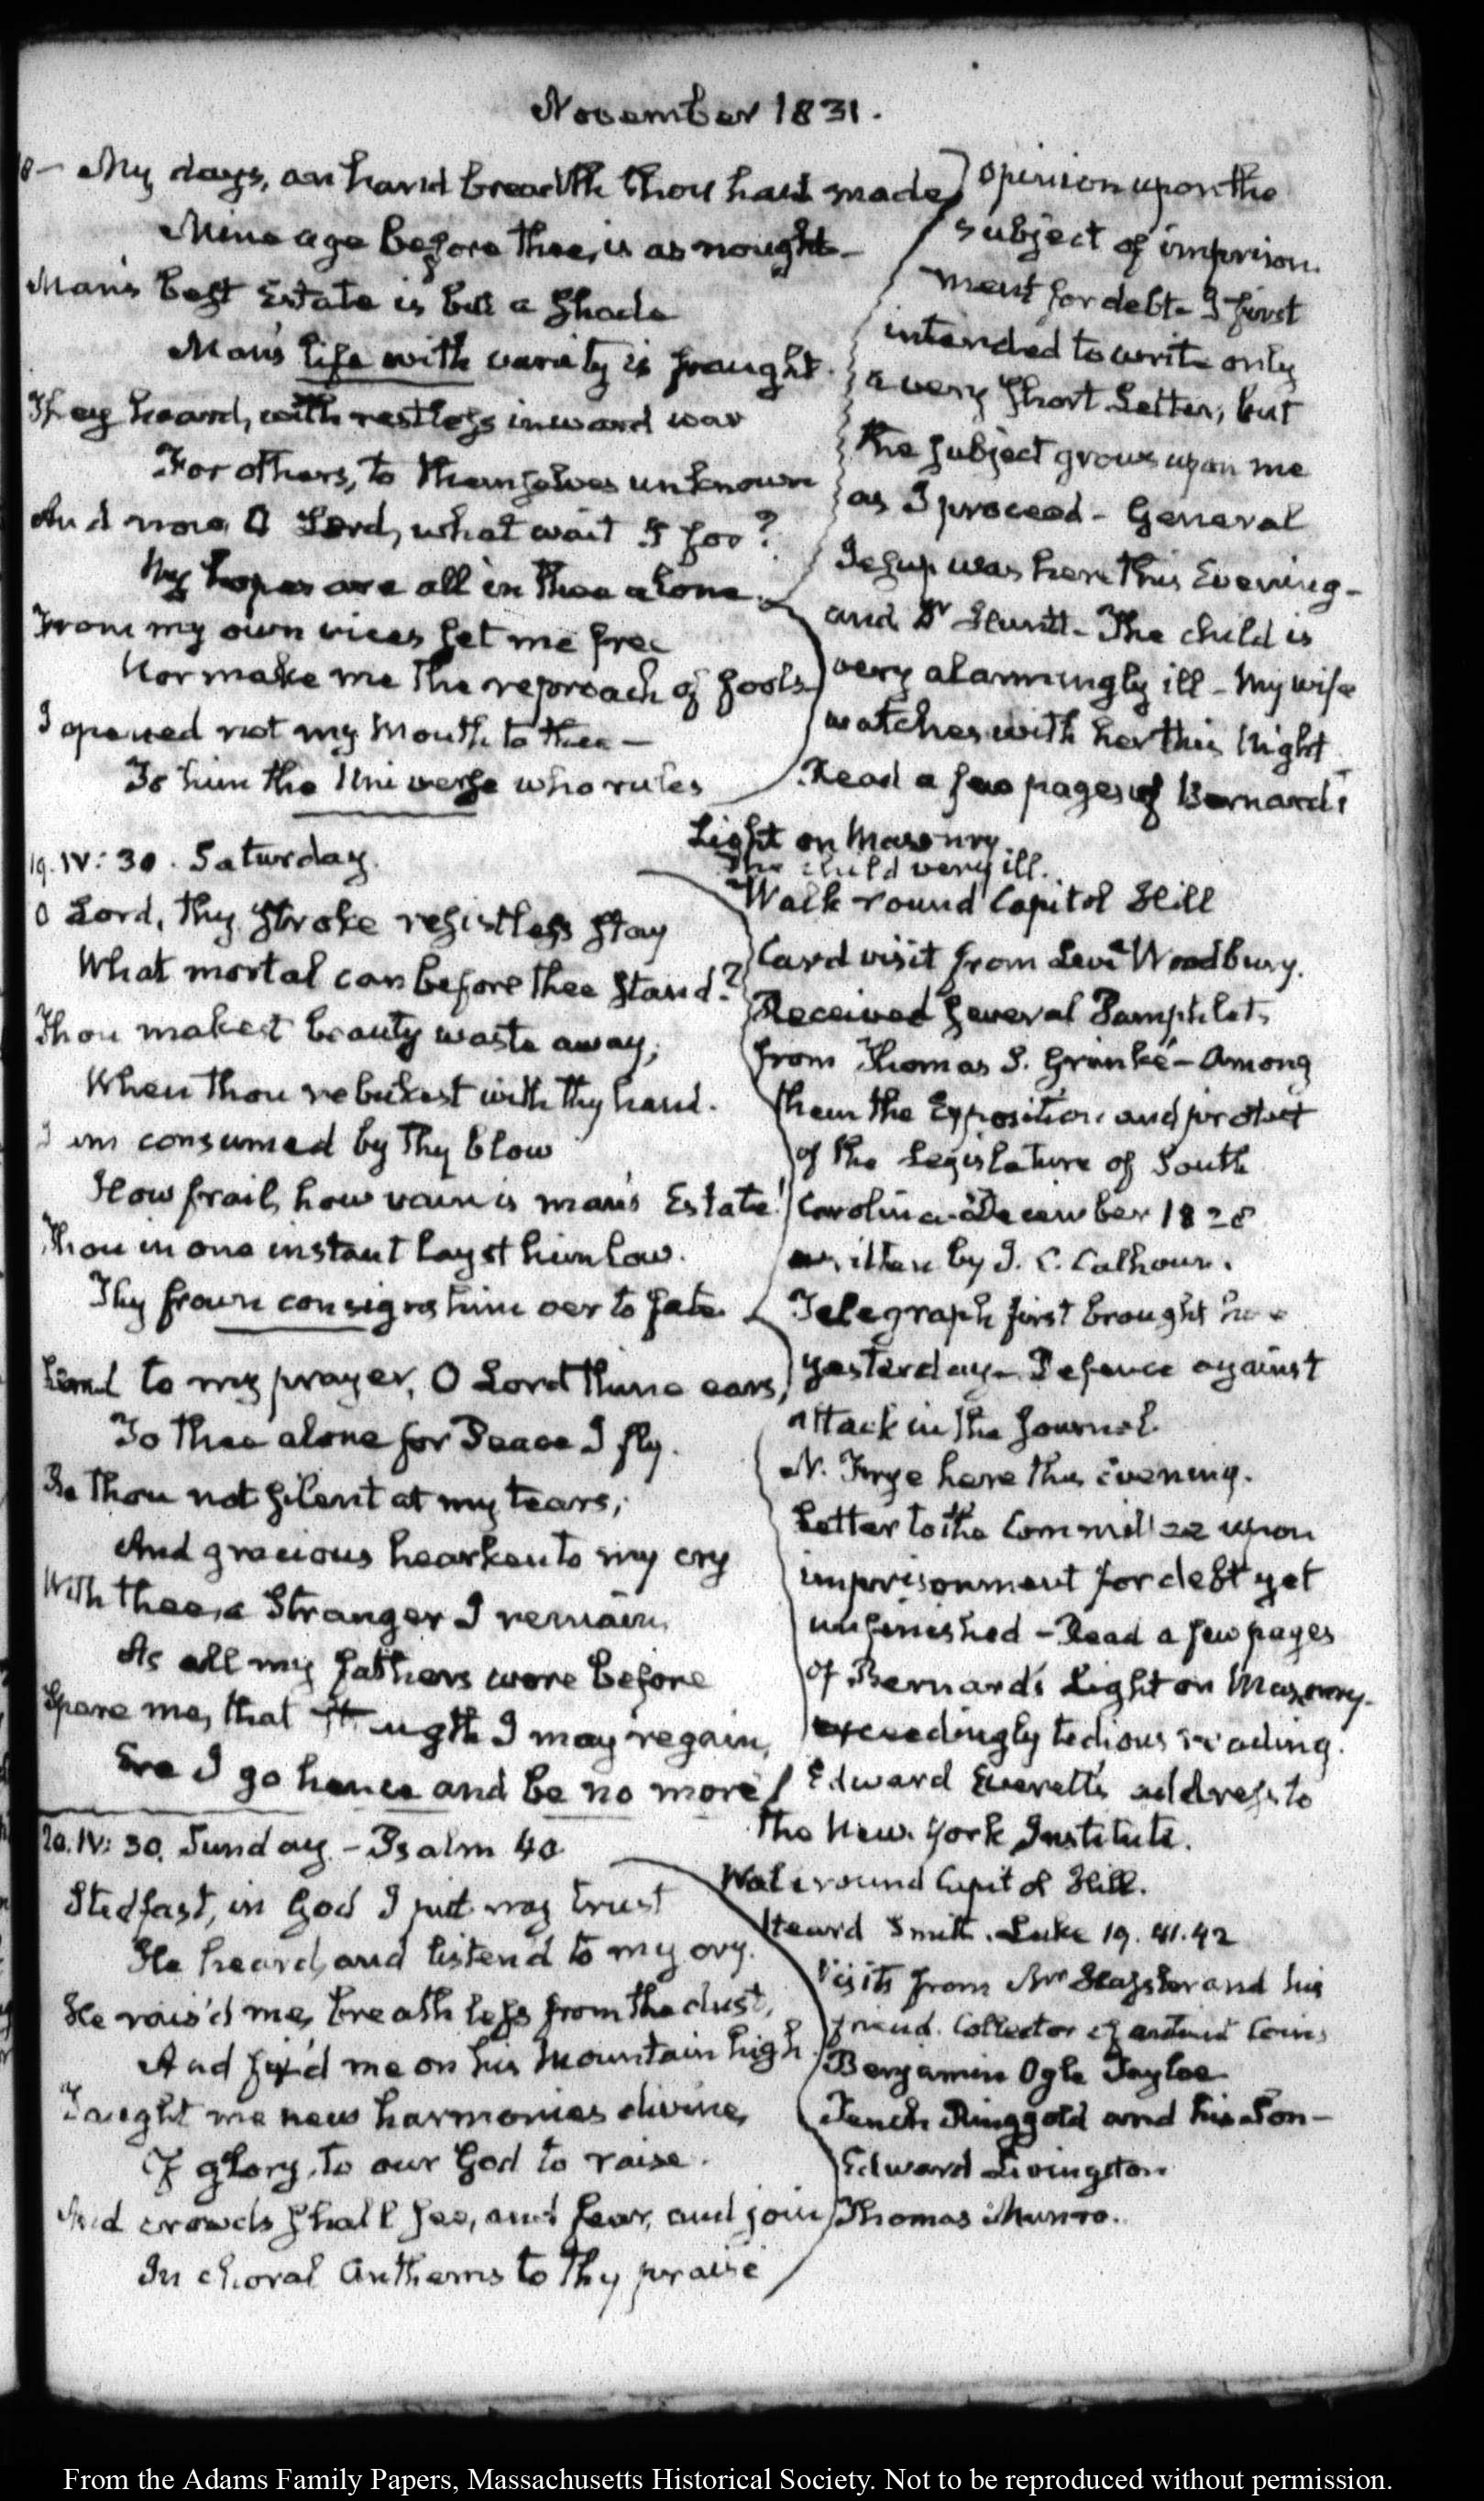 November 1831.
18 – My days, an hand breadth thou hast made
Mine age before thee, is as nought –
Man's best Estate is but a shade
Man's life with vanity is fraught.
They heard, with restless inward war
For others, to themselves unknown
And now O Lord, what wait I for?
My hopes are all in thee alone
From my own vices set me free
Nor make me the reproach of fools
I opened not my mouth to thee –
To him the Universe who rules
opinion upon the
subject of imprison
ment for debt – I first
intended to write only
a very short Letter, but
the subject grows upon me
as I proceed – General
Jesup was here this Evening –
and Dr Huntt – The child is
very alarmingly ill – My wife
watches with her this Night
Read a few pages of Bernard's
Light on Masonry.
19. IV: 30. Saturday.
O Lord, thy stroke resistless stay
What mortal can before thee stand?
Thou makest beauty waste away;
When thou rebukest with thy hand.
I am consumed by Thy blow
How frail, how vain is man's Estate!
Thou in one instant layst him low.
Thy frown consigns him oer to fate.
to my prayer, O Lord thine ears,
To thee alone for Peace I fly.
Be thou not silent at my tears;
And gracious hearken to my cry
With thee, a Stranger I remain,
As all my fathers were before
Spare me, that strength I may regain,
Ere I go hence and be no more!
The child very ill.
Walk round Capitol Hill
Card visit from Levi Woodbury.
Received several Pamphlets
from Thomas S. Grimké – Among
them the Exposition and protest
of the Legislature of South
Carolina – December 1828
written by J. C. Calhoun.
Telegraph first brought here
yesterday – Defence against
attack in the Journal.
N. Frye here this evening.
Letter to the Committee upon
imprisonment for debt yet
unfinished – Read a few pages
of Bernard's Light on Masonry –
exceedingly tedious reading.
Edward Everett's address to
the New York Institute.
20. IV: 30. Sunday – Psalm 40
Stedfast, in God I put my trust
He heard, and listend to my cry.
He rais'd me, breathless from the dust,
And fix'd me on his mountain high.
Taught me new harmonies divine,
Of glory, to our God to raise.
And crowds shall see, and fear, and join
In choral Anthems to Thy praise
Walk round Capitol Hill.
Heard Smith. Luke 19. 41.42
Visits from Mr and his
friend. Collector of antient Coins
Benjamin Ogle Tayloe
Tench Ringgold and his Son –
Edward Livingston
Thomas Munro.
From the Adams Family Papers, Massachusetts Historical Society. Not to be reproduced without permission.